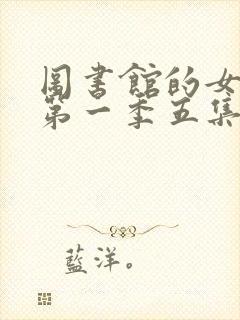 圖書館的女
第一季五集
藍洋。